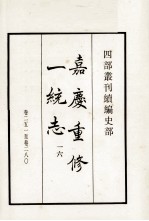 四部叢刊續編史部
嘉慶重修
一統志 一六
卷二五一至卷二八〇